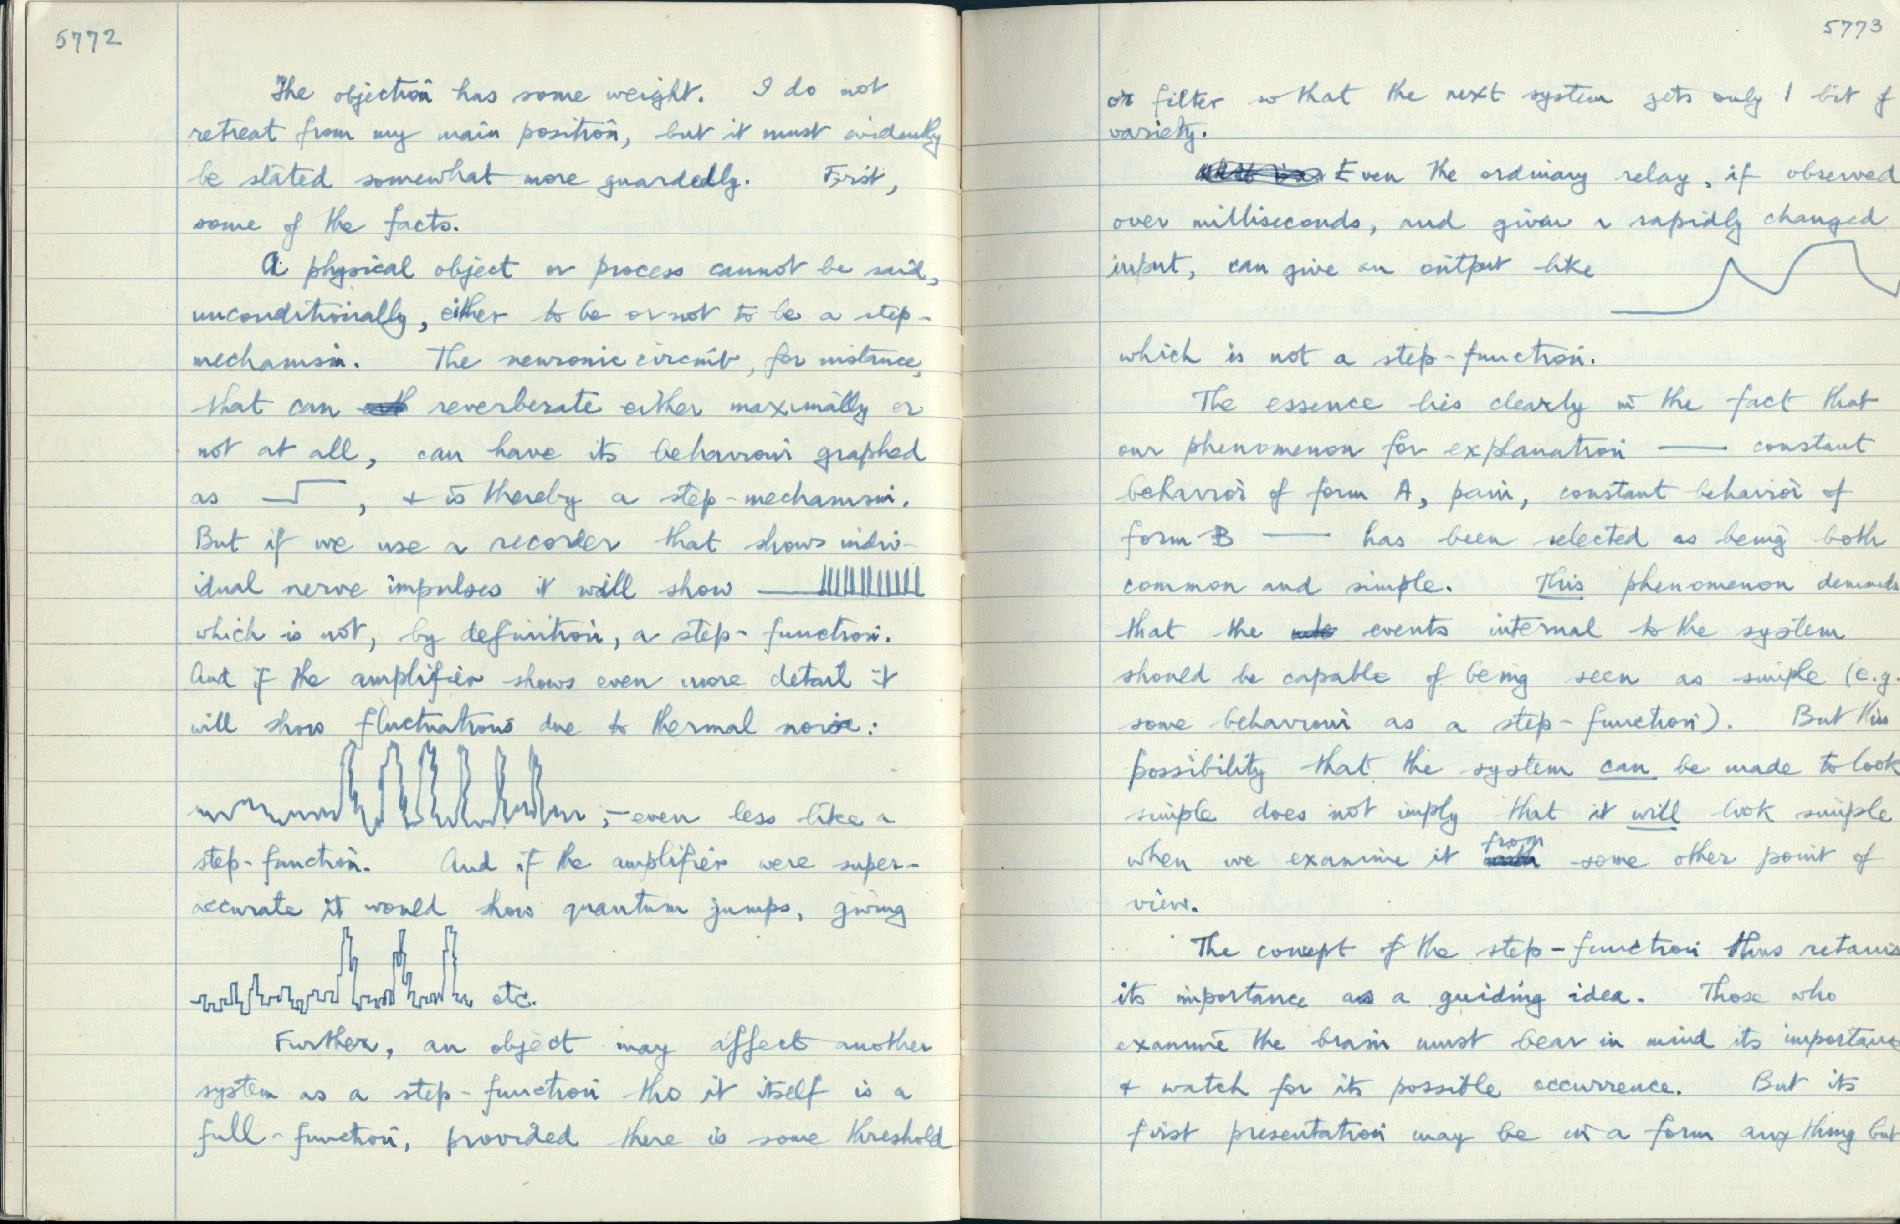 5772
The objection has some weight. I do not
retreat from my main position, but it must evidently
be stated somewhat more guardedly. First,
some of the facts.
A physical object or process cannot be said,
unconditionally, either to be or not to be a step-
mechanism. The neuronic circuit, for instance,
that can reverberate either maximally or
not at all, can have its behaviour graphed
as , & is thereby a step-mechanism.
But if we use a recorder that shows indiv-
idual nerve impulses it will show
which is not, by definition, a step-function.
And if the amplifier shows even more detail it
will show fluctuations due to thermal noise:
; - even less like a
step-function. And if the amplifier were super-
accurate it would show quantum jumps, giving
etc.
Further, an object may affect another
system as a step-function tho it itself is a
full-function, provided there is some threshold
5773
or filter so that the next system gets only 1 bit of
variety.
Even the ordinary relay, if observed
over milliseconds, and given a rapidly changed
input, can give an output like
which is not a step-function.
The essence lies clearly in the fact that
our phenomenon for explanation — constant
behavior of form A, pain, constant behavior of
form B — has been selected as being both
common and simple. This phenomenon demands
that the events internal to the system
should be capable of being seen as simple (e.g.
some behaviour as a step-function). But this
possibility that the system can be made to look
simple does not imply that it will look simple
when we examine it from some other point of
view.
The concept of the step-function thus retains
its importance as a guiding idea. Those who
examine the brain must bear in mind its importance
& watch for its possible occurrence. But its
first presentation may be in a form anything but